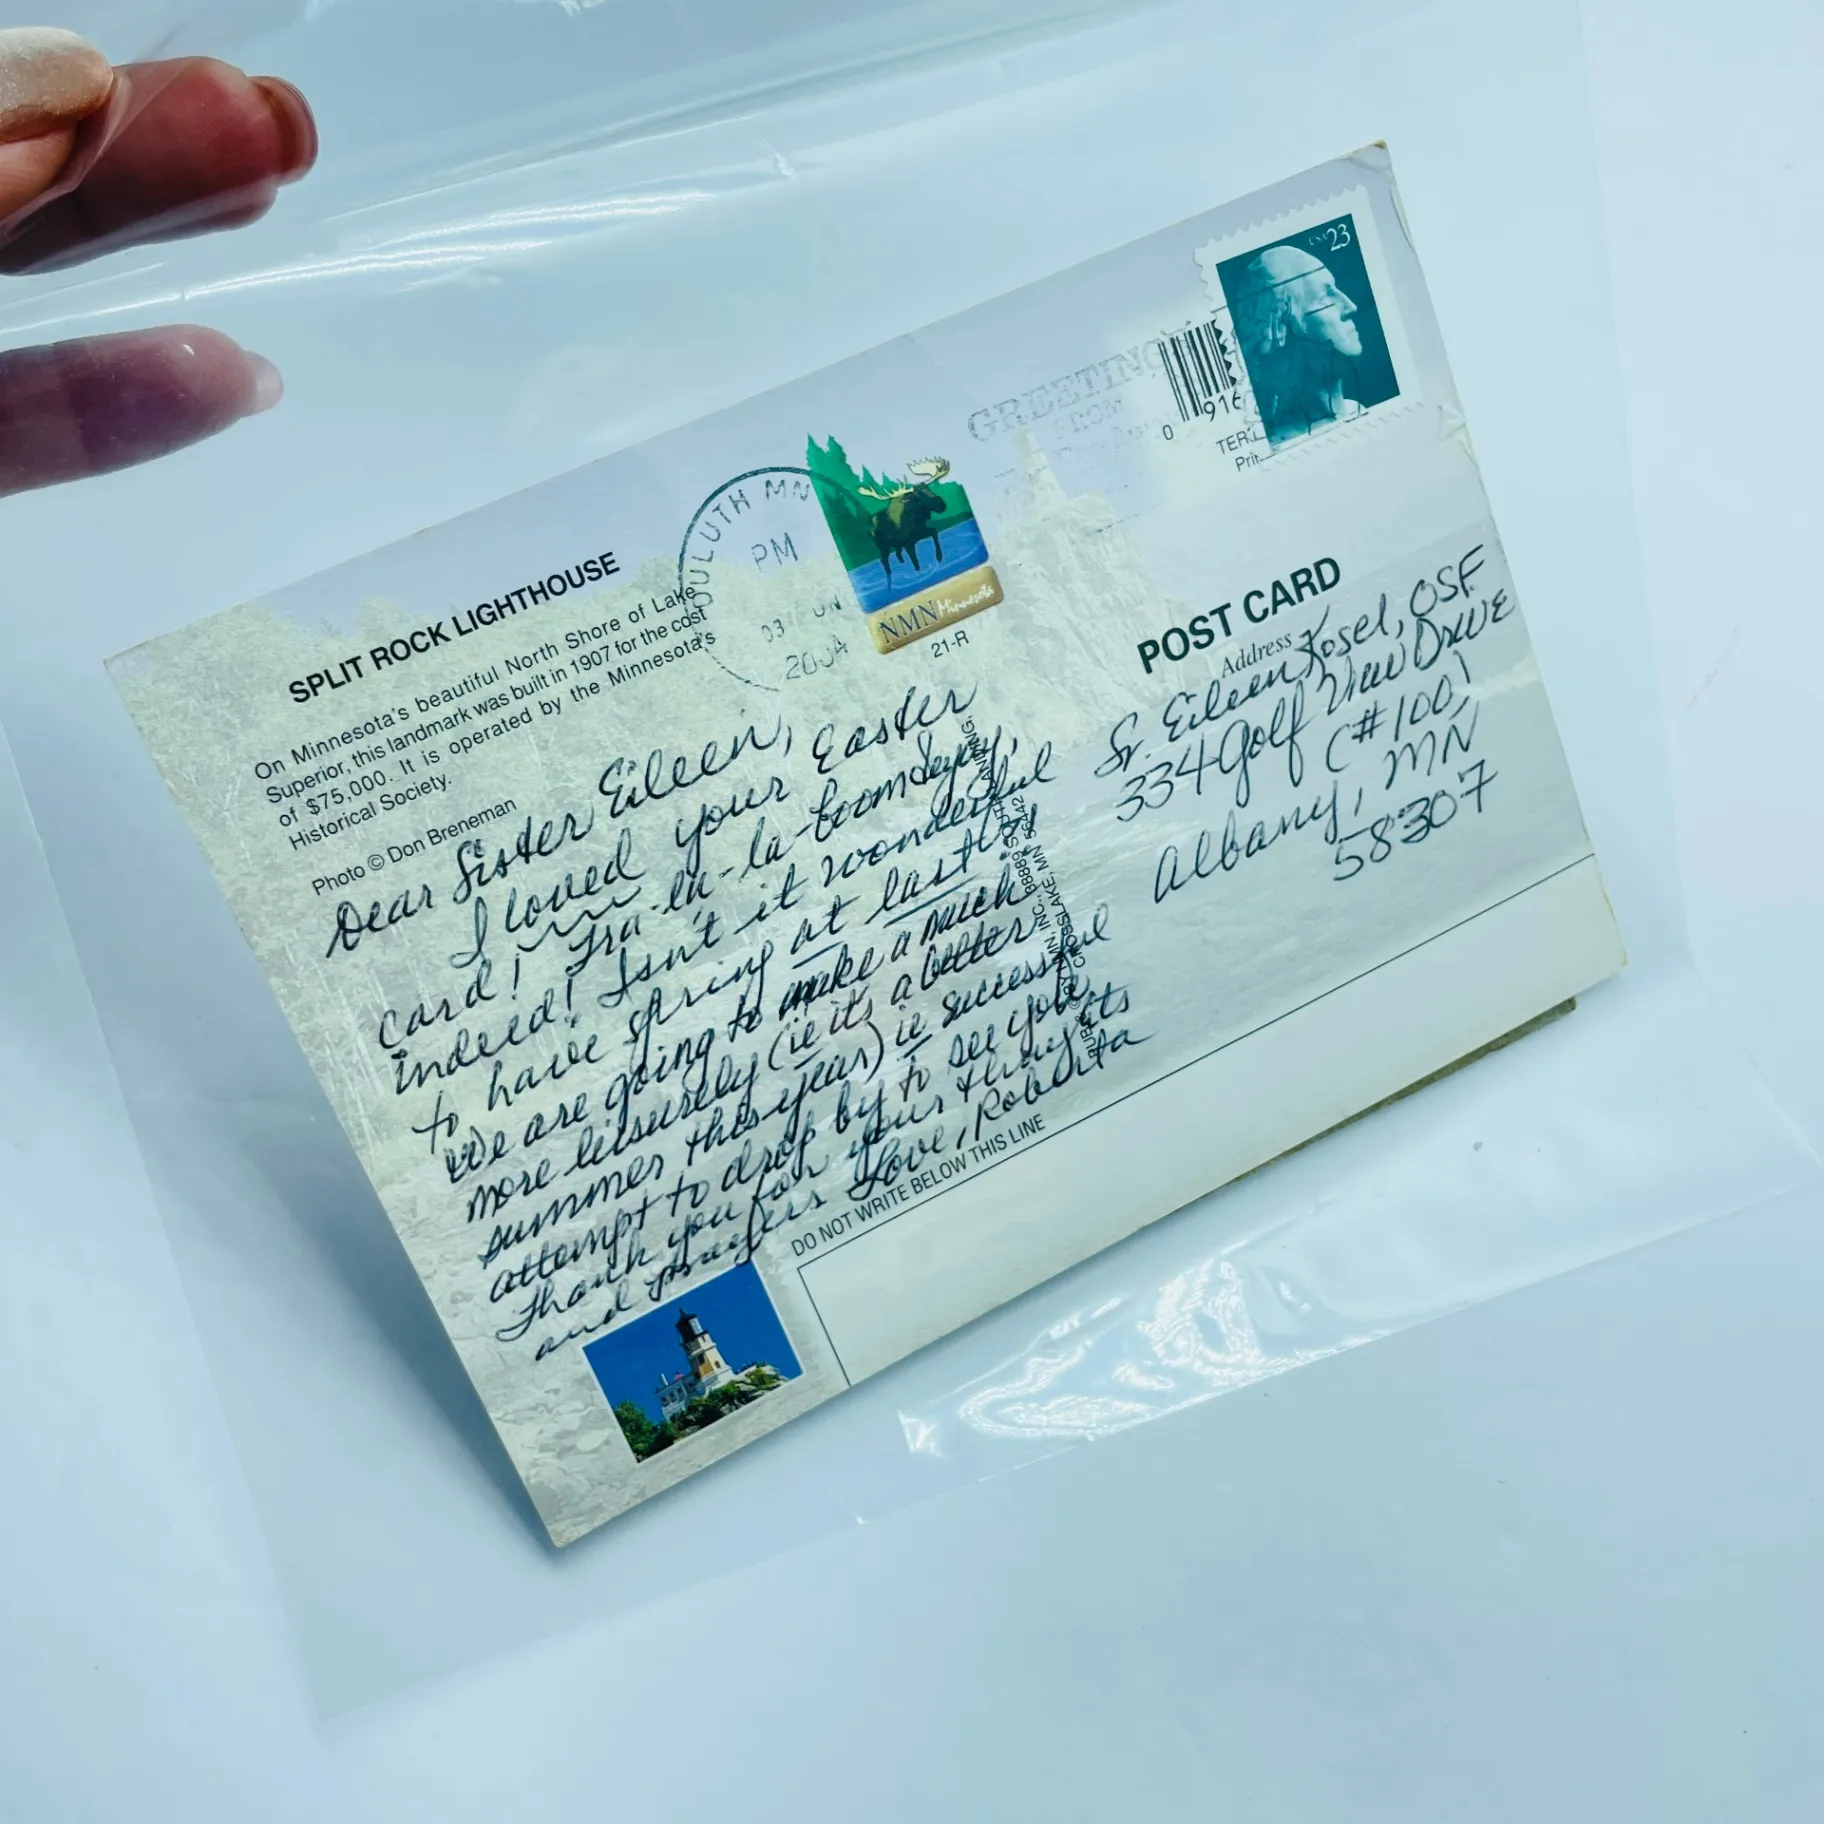 SPLIT ROCK LIGHTHOUSE
On Minnesota's beautiful North Shore of Lake
Superior, this landmark was built in 1907 for the cost
of $75,000. It is operated by the Minnesota's
Historical Society.
Photo © Don Breneman
DULUTH MN
PM
03
2004
NMN Minnesota
21-R
GREETINGS
FROM
0 916
USA 23
POST CARD
Address
Dear Sister Eileen,
I loved your Easter
card! Tra-la-la-boomdeyay,
indeed! Isn't it wonderful
to have spring at last!
We are going to make a much
more leisurely (ie it's a better
summer this year) ie successful
attempt to drop by to see you
Thank you for your thoughts
and prayers Love, Roberta
Sr. Eileen Kosel, OSF
334 Golf View Drive
(#100)
Albany, MN
58307
DO NOT WRITE BELOW THIS LINE